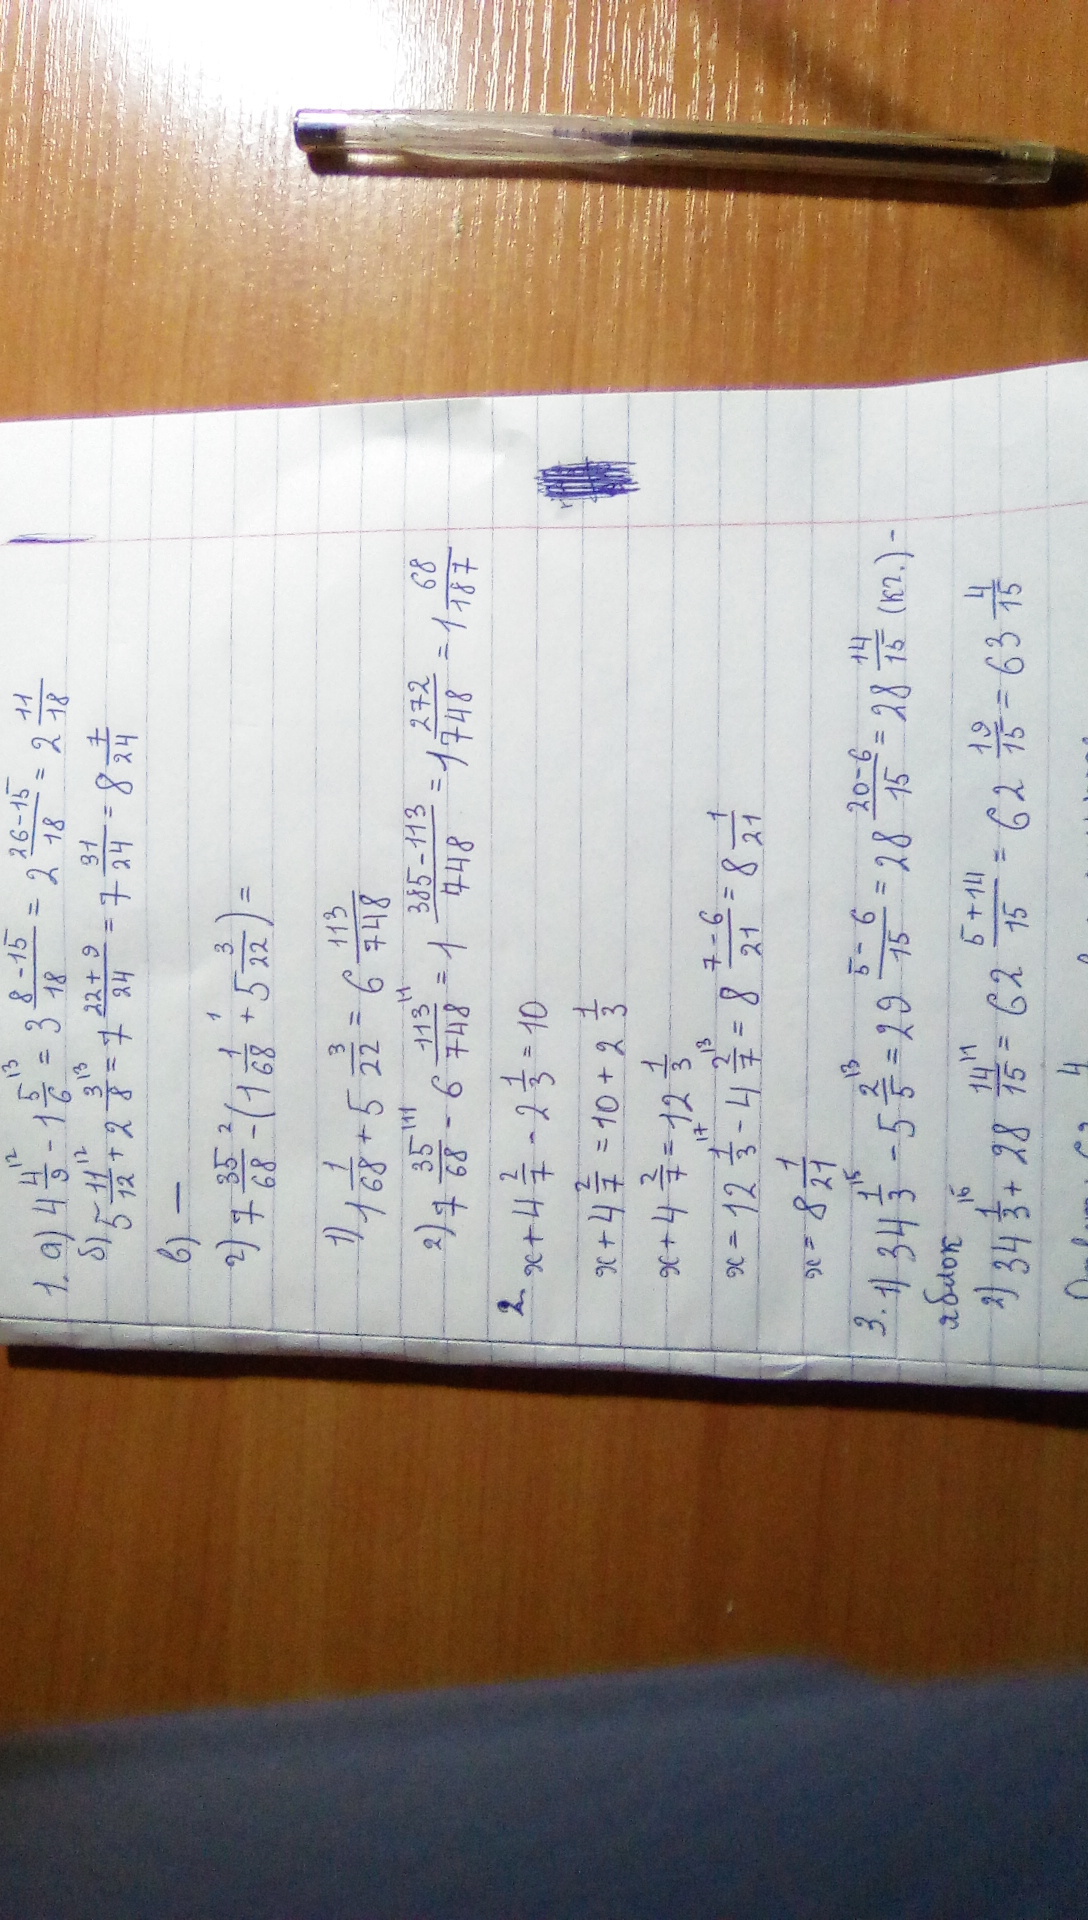 1. а) 4 4/9 |2 - 1 5/6 |3 = 3 8-15/18 = 2 26-15/18 = 2 11/18
б) 5 11/12 |2 + 2 3/8 |3 = 7 22+9/24 = 7 31/24 = 8 7/24
в) —
г) 7 35/68 2 - (1 1/68 1 + 5 3/22) =
1) 1 1/68 + 5 3/22 = 6 113/748
2) 7 35/68 |11 - 6 113/748 |1 = 1 385-113/748 = 1 272/748 = 1 68/187
2. x + 4 2/7 - 2 1/3 = 10
x + 4 2/7 = 10 + 2 1/3
x + 4 2/7 = 12 1/3
x = 12 1/3 |7 - 4 2/7 |3 = 8 7-6/21 = 8 1/21
x = 8 1/21
3. 1) 34 1/3 |5 - 5 2/5 |3 = 29 5-6/15 = 28 20-6/15 = 28 14/15 (кг.) -
яблок
2) 34 1/3 |5 + 28 14/15 |1 = 62 5+14/15 = 62 19/15 = 63 4/15